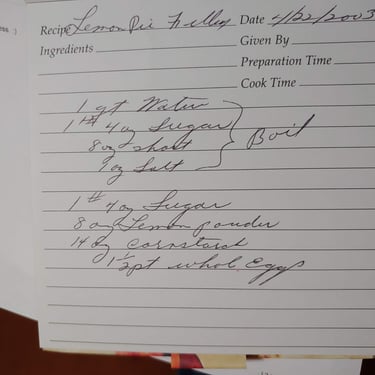 ess )
Recipe Lemon Pie Filling Date 4/22/2003
Ingredients Given By
Preparation Time
Cook Time
1 qt Water
1# 4 oz Sugar
8 oz short Boil
1 oz Salt
1# 4 oz Sugar
8 oz Lemon powder
14 oz cornstarch
1 1/2 pt whol Eggs